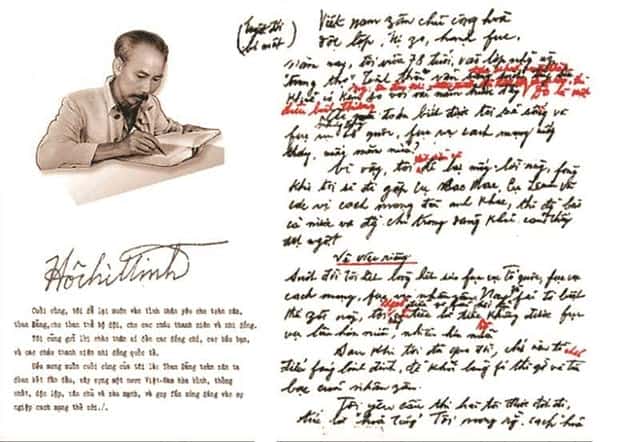 Hồ Chí Minh
Cuối cùng, tôi để lại muôn vàn tình thân yêu cho toàn dân,
toàn Đảng,cho toàn thể bộ đội, cho các cháu thanh niên và nhi đồng.
Tôi cũng gửi lời chào thân ái đến các đồng chí, các bầu bạn,
và các cháu thanh niên nhi đồng quốc tế.
Điều mong muốn cuối cùng của tôi là: Toàn Đảng toàn dân ta
đoàn kết phấn đấu, xây dựng một nước Việt-Nam hòa bình, thống
nhất, độc lập, dân chủ và giàu mạnh, và góp phần xứng đáng vào sự
nghiệp cách mạng thế giới./.
(Tuyệt đối
bí mật)
Việt nam zân chủ cộng hoà
độc lập, tự zo, hạnh fúc
năm nay, tôi vừa 78 tuổi, vào lớp những
"trung thọ"
toán biết được tôi sẽ sống và
fục vụ tổ quốc, fục vụ cách mạng mấy
tháng, mấy năm nữa?
Vì vậy, tôi để lại mấy lời này, fòng
khi tôi sẽ đi gặp cụ Các Mác, cụ Lênin và
các vị cách mạng đàn anh khác, thì đồng bào
cả nước và đồng chí trong đảng khỏi cảm thấy
đột ngột
Về việc riêng
Suốt đời tôi hết lòng hết sức fục vụ tổ quốc, fục vụ
cách mạng, fục vụ nhân zân. Nay zù fải từ biệt
thế giới này, tôi
Sau khi tôi đã qua đời, chớ nên tổ chức
điếu fúng linh đình, để khỏi lãng fí thì giờ và tiền
bạc của nhân zân.
Tôi yêu cầu thi hài tôi được đốt đi,
tức là "hoả táng". Tôi mong rằng cách hoả